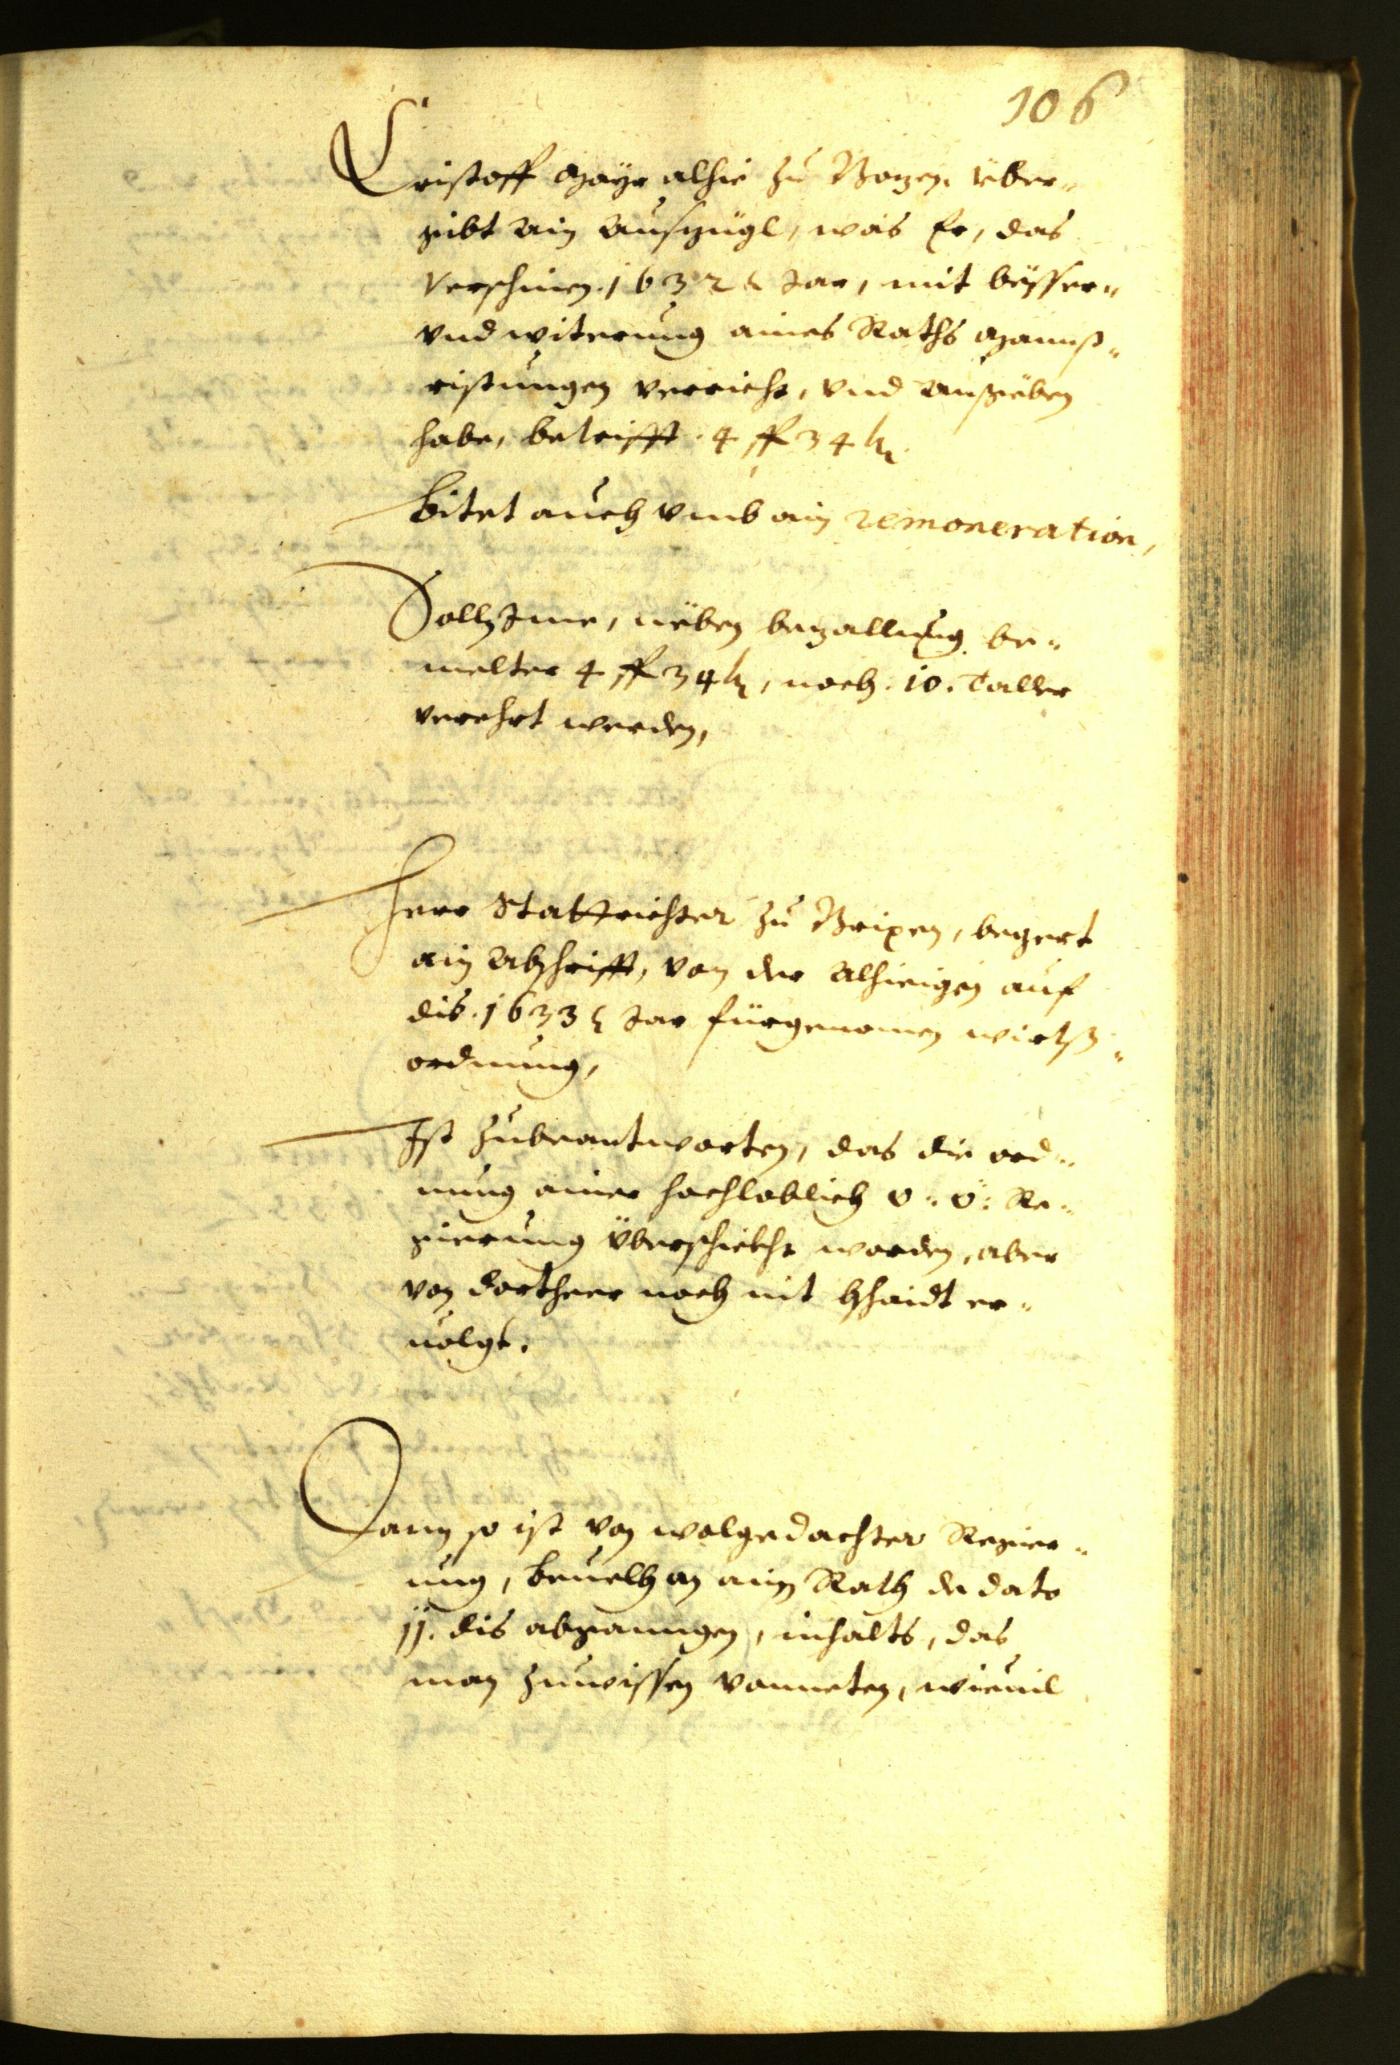 106
Cristoff Mayr alhie zu Bozen, uber-
gibt ain Auszügl, was Er, das
verschinen 1632 Jar, mit besser-
und witerung aines Raths
verricht, und ausgeben
habe, betrifft 4 fl 34 kr
bitet auch umb ain remoneration,
Solln Ime, neben bezallung be-
melter 4 fl 34 kr, noch 10. Taller
verehrt werden,
Herr Stattrichter zu Brixen, begert
ain Abschrifft, von der Alhieigen auf
dis 1633 Jar fürgenomen wirtß-
ordnung,
Ist zubeantworten, das die ord-
nung ainer hochloblich O: Ö: Re-
gierung überschickht worden, aber
von dortheer noch nit bschaidt er-
uolgt.
Dann so ist von wolgedachter Regier-
ung, beuelh an ain Rath de dato
11. dis abgangen, inhalts, das
man zuwissen vonneten, wieuil